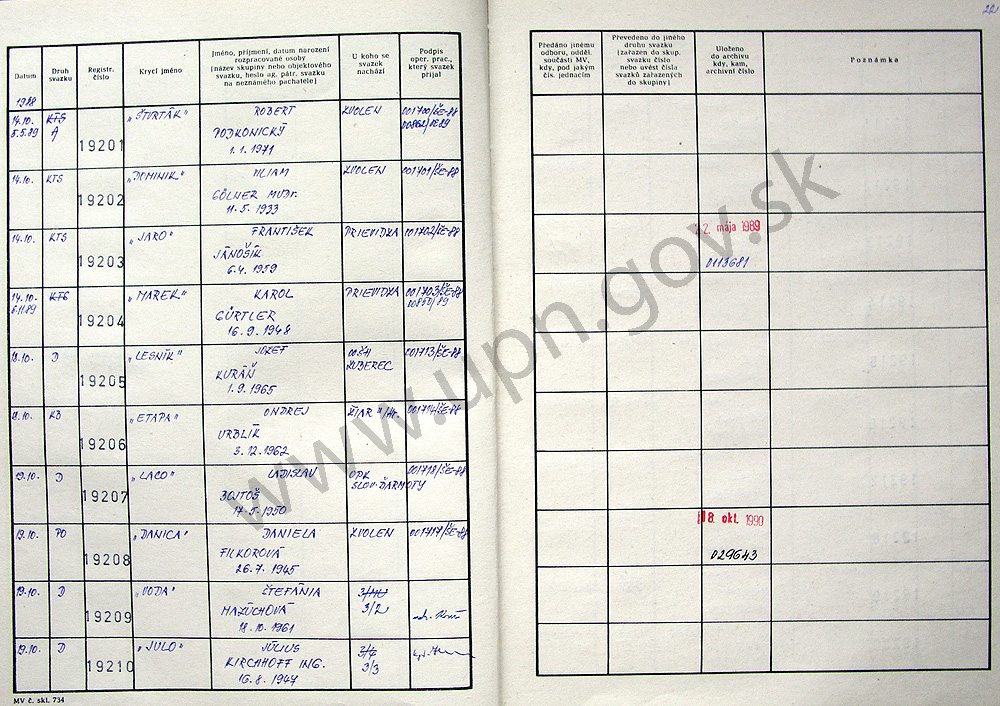 221
Datum
Druh svazku
Registr. číslo
Krycí jméno
Jméno, příjmení, datum narození
rozpracované osoby
(název skupiny nebo objektového
svazku, heslo ag. pátr. svazku
na neznámého pachatele)
U koho se
svazek
nachází
Podpis
oper. prac.,
který svazek
přijal
Předáno jinému
odboru, odděl.
součásti MV,
kdy, pod jakým
čís. jednacím
Převedeno do jiného
druhu svazku
(zařazen do skup.
svazku číslo
nebo uvést čísla
svazků zařazených
do skupiny)
Uloženo
do archivu
kdy, kam,
archivní číslo
Poznámka
1988
14.10. KTS „ŠTVRTÁK" ROBERT ZVOLEN 001700/ŠE-88
5.5.89 A 19201 PODKONICKÝ
1.1.1971
14.10. KTS „DOMINIK" VILIAM ZVOLEN 001701/ŠE-88
19202 GÖLNER MUDr.
11.5.1933
14.10. KTS „JARO" FRANTIŠEK PRIEVIDZA 001702/ŠE-88 2. mája 1989
19203 JÁNOŠÍK 0113681
6.4.1959
14.10. KTS „MAREK" KAROL PRIEVIDZA 001703/ŠE-88
6.11.89 19204 GÜRTLER
16.9.1948
18.10. D „LESNÍK" JOZEF 001713/ŠE-88
19205 KURÁŇ ZUBEREC
1.9.1965
18.10. KB „ETAPA" ONDREJ 001714/ŠE-88
19206 VRBLÍK
3.12.1962
19.10. D „LACO" LADISLAV OPK 001718/ŠE-88
19207 BOJTOŠ SLOV. ĎARMOTY
17.5.1950
19.10. PO „DANICA" DANIELA ZVOLEN 001717/ŠE-88 18. okt. 1990
19208 FILKOROVÁ 029643
26.7.1945
19.10. D „VODA" ŠTEFÁNIA
19209 MAZÚCHOVÁ 3/2
18.10.1961
19.10. D „JULO" JÚLIUS
19210 KIRCHHOFF ING. 3/3
16.8.1947
MV č. skl. 734
www.upn.gov.sk